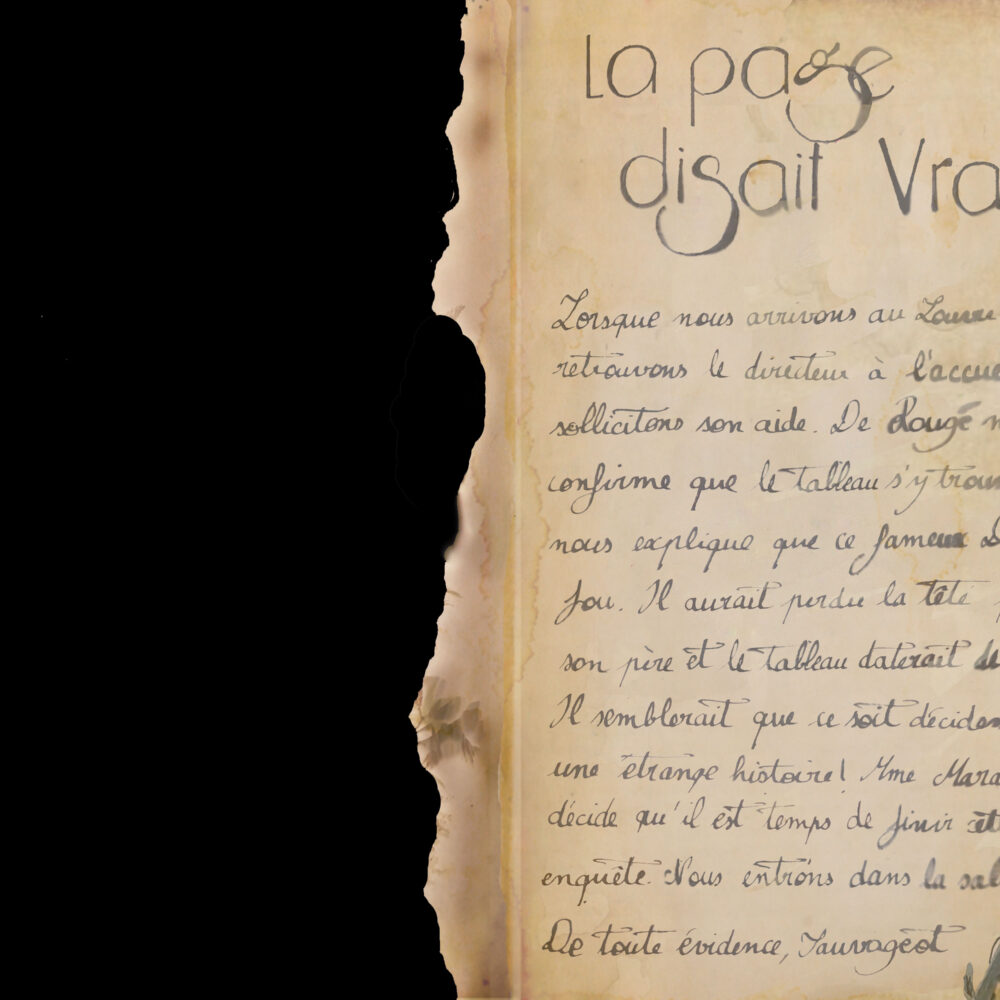 La page
disait Vra
Lorsque nous arrivons au Louvre
retrouvons le directeur à l'accue
sollicitons son aide. De Rougé n
confirme que le tableau s'y trouv
nous explique que ce fameux
fou. Il aurait perdu la tête
son père et le tableau daterait de
Il semblerait que ce soit décidem
une étrange histoire! Mme Mara
décide qu'il est temps de finir cet
enquête. Nous entrons dans la sal
De toute évidence, Sauvageot